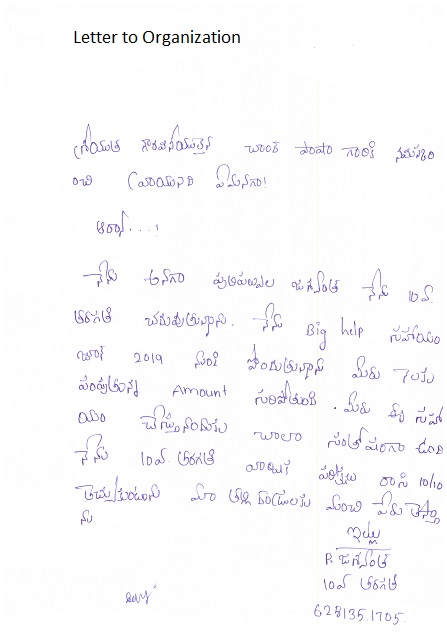 Letter to Organization
శ్రీయుత గౌరవనీయులైన చాంద పాషా గారికి నమస్కరిం
ంచి వ్రాయునది ఏమనగా!
ఆర్యా....!
నేను అనగా పులిపలుపుల జశ్వంత్ నేను 10వ
తరగతి చదువుతున్నాను. నేను Big help సహాయం
జూన్ 2019 నుండి పొందుతున్నాను మీరు 7లకు
పంపుతున్న Amount సరిపోతుంది. మీరు ఈ సహా
యం చేస్తునందుకు చాలా సంతోషంగా ఉంది
నేను 10వ తరగతి వార్షిక పరీక్షలు రాసి 10/10
తెచ్చుకుంటాను మా తల్లి దండ్రులకు మంచి పేరు తెస్తా
ను
ఇట్లు
P. జశ్వంత్
10వ తరగతి
628135.1705.